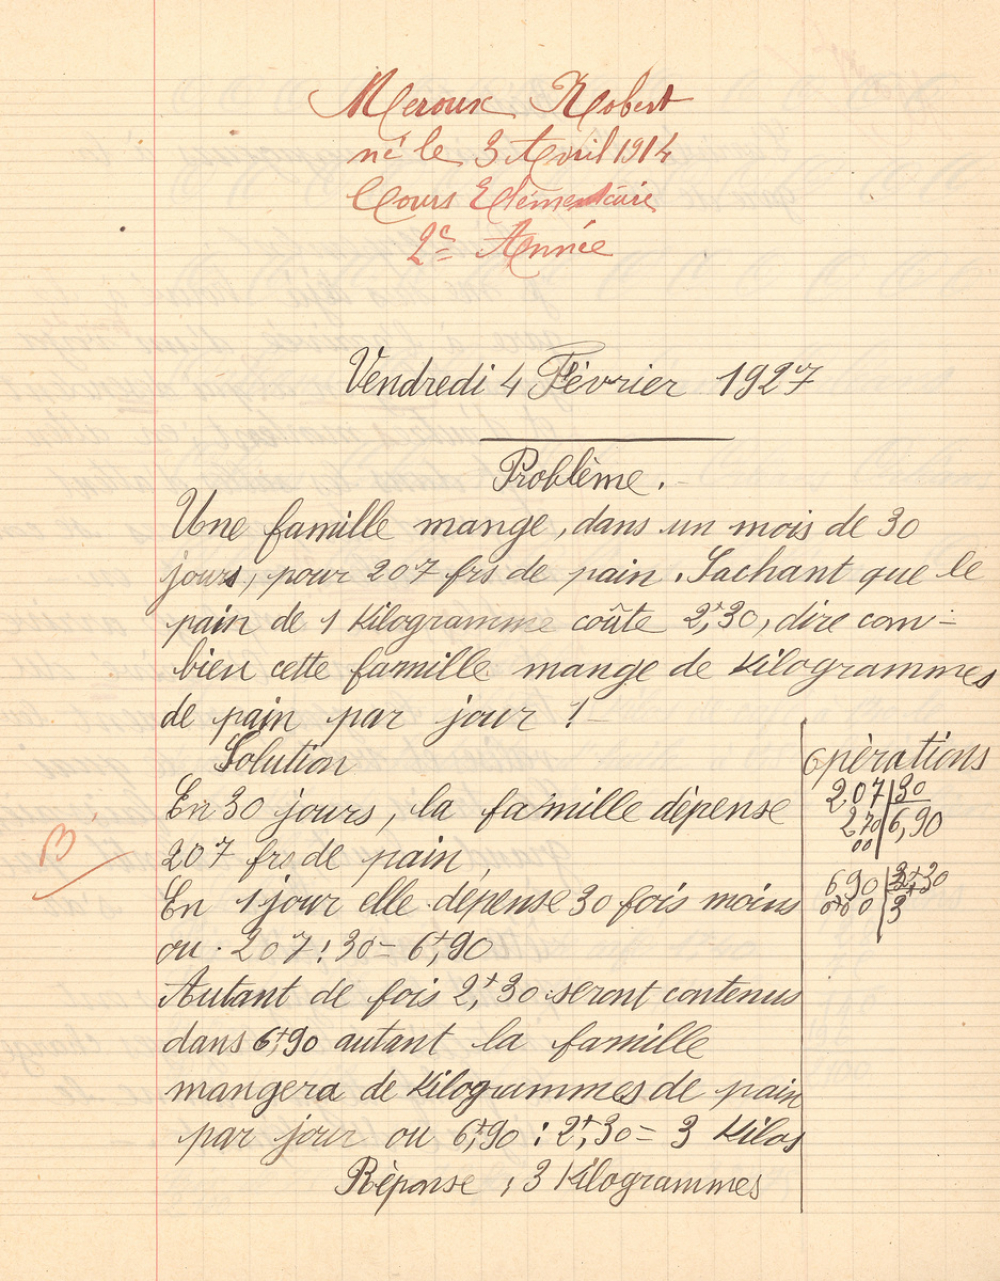 Meroux Robert
né le 3 Avril 1914
Cours Elémentaire
2e Année
Vendredi 4 Février 1927
Problème.
Une famille mange, dans un mois de 30
jours, pour 207 frs de pain. Sachant que le
pain de 1 Kilogramme coûte 2f,30, dire com-
bien cette famille mange de Kilogrammes
de pain par jour !
Solution
En 30 jours, la famille dépense
207 frs de pain
En 1 jour elle dépense 30 fois moins
ou 207 : 30 = 6f,90
Autant de fois 2f,30 seront contenus
dans 6f,90 autant la famille
mangera de Kilogrammes de pain
par jour ou 6f,90 : 2f,30 = 3 Kilos
Réponse : 3 Kilogrammes
Opérations
207 | 30
270 | 6,90
00
690 | 2f30
000 | 3
B